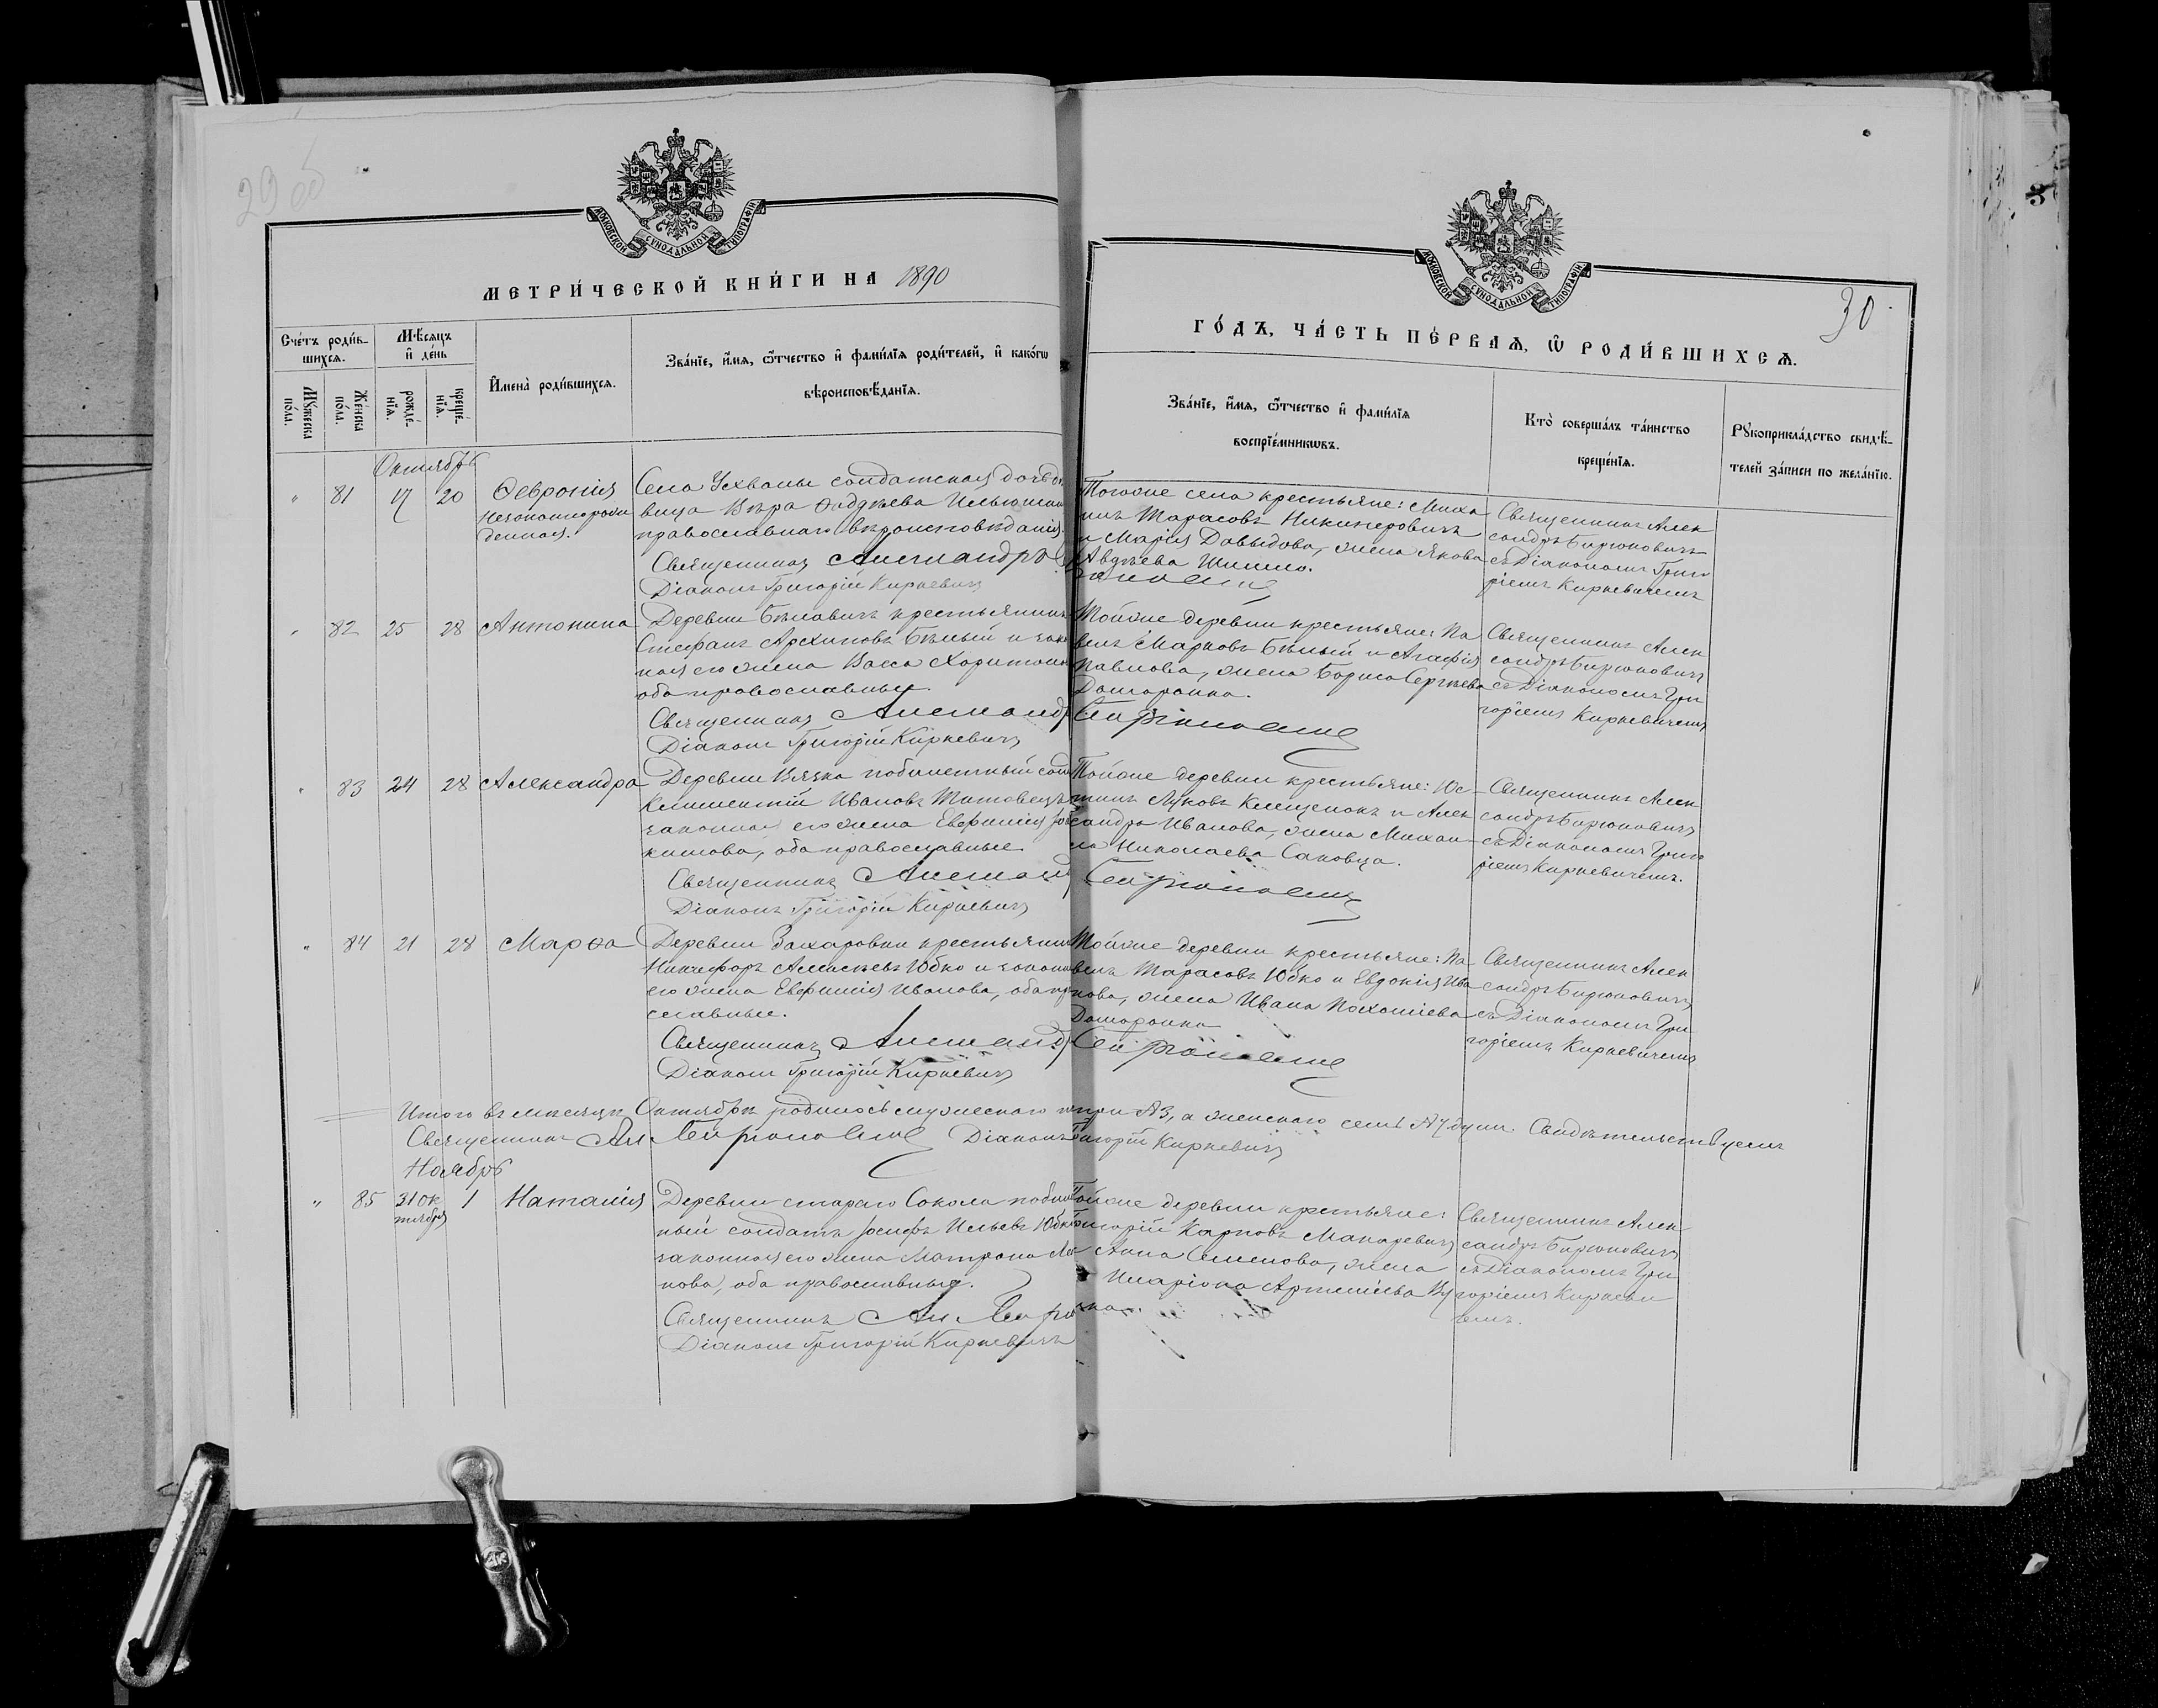 29 об
МОСКОВСКОЙ СѴНОДАЛЬНОЙ ТИПОГРАФІИ
МЕТРИ́ЧЕСКОЙ КНИ́ГИ НА 1890
Сче́тъ роди́в-
шихся.
Мꙋжеска по́ла.
Же́нска по́ла.
Мѣ́сяцъ
и҆ де́нь
рожде́-
нїѧ.
креще́-
нїѧ.
И҆мена̀ роди́вшихсѧ.
Зва́нїе, и҆́мѧ, ѻ҆́тчество и҆ фами́лїѧ роди́телей, и҆ како́гѡ
вѣроисповѣ́данїѧ.
Октябрь
" 81 17 20 Ѳевронія
Незаконнорож
денная.
Села Ухвалы солдатская дочь дѣ
вица Вѣра
православнаго вѣроисповѣданія.
Священникъ Александръ
Діаконъ Григорій Киркевичъ
" 82 25 28 Антонина
Деревни Бѣлавичъ крестьянинъ
Стефанъ Архиповъ Бѣлый и зако
ная его жена Васса Харитонова
оба православные.
Священникъ Александръ
Діаконъ Григорій Киркевичъ
" 83 24 28 Александра
Деревни Вязка побилетный солд
Климентій Ивановъ Титовецъ
законная его жена Евфимія
кимова, оба православные.
Священникъ Александръ
Діаконъ Григорій Киркевичъ
" 84 21 28 Марѳа
Деревни Захаровки крестьянинъ
Никифоръ Алексѣевъ Юбко и законн
его жена Евфимія Иванова, оба пра
славные.
Священникъ Александръ
Діаконъ Григорій Киркевичъ
Итого въ мѣсяцѣ Октябрѣ родилось мужескаго три №3, а женскаго семь №7 душъ. Свидѣтельствуемъ
Священникъ Ал. Бирюковичъ Діаконъ Григорій Киркевичъ
Ноябрь
" 85 31 Ок
тября 1 Наталія
Деревни стараго Сокола побиле
ный солдатъ Іосифъ Ильевъ Юбко
законная его жена Матрона
нова, оба православные.
Священникъ Ал. Бирю
Діаконъ Григорій Киркевичъ
30
МОСКОВСКОЙ СѴНОДАЛЬНОЙ ТИПОГРАФІИ
ГО́ДЪ, ЧА́СТЬ ПЕ́РВАѦ, Ѡ҆ РОДИ́ВШИХСѦ.
Зва́нїе, и҆́мѧ, ѻ҆́тчество и҆ фами́лїѧ
воспрїе́мникѡвъ.
Кто̀ соверша́лъ та́инство
креще́нїѧ.
Рꙋкоприкла́дство свидѣ́-
телей за́писи по жела́нїю.
Тогоже села крестьяне: Миха
илъ Тарасовъ Никиперовичъ
и Марія Давыдова, жена Якова
Авдѣева Шишло.
Священникъ Алек
сандръ Бирюковичъ
съ Діакономъ Григо
ріемъ Киркевичемъ
Тойже деревни крестьяне: Па
велъ Марковъ Бѣлый и Агафія
Павлова, жена Бориса Сергѣева
Доморанка.
Бирюковичъ
Священникъ Алек
сандръ Бирюковичъ
съ Діакономъ Гри
горіемъ Киркевичемъ
Тойже деревни крестьяне: Юс-
тинъ Луковъ Клещенокъ и Алек
сандра Иванова, жена Михаи-
ла Николаева Саковца.
Бирюковичъ
Священникъ Алек
сандръ Бирюковичъ
съ Діакономъ Григо
ріемъ Киркевичемъ.
Тойже деревни крестьяне: Па-
велъ Тарасовъ Юбко и Евдокія Ива
нова, жена Ивана Пахоміева
Доморанка
Бирюковичъ
Священникъ Алек
сандръ Бирюковичъ
съ Діакономъ Гри
горіемъ Киркевичемъ
Тойже деревни крестьяне:
Григорій Карповъ Макаревичъ
Анна Семенова, жена
Иларіона Артеміева
Священникъ Алек-
сандръ Бирюковичъ
съ Діакономъ Гри
горіемъ Киркеви
чемъ.